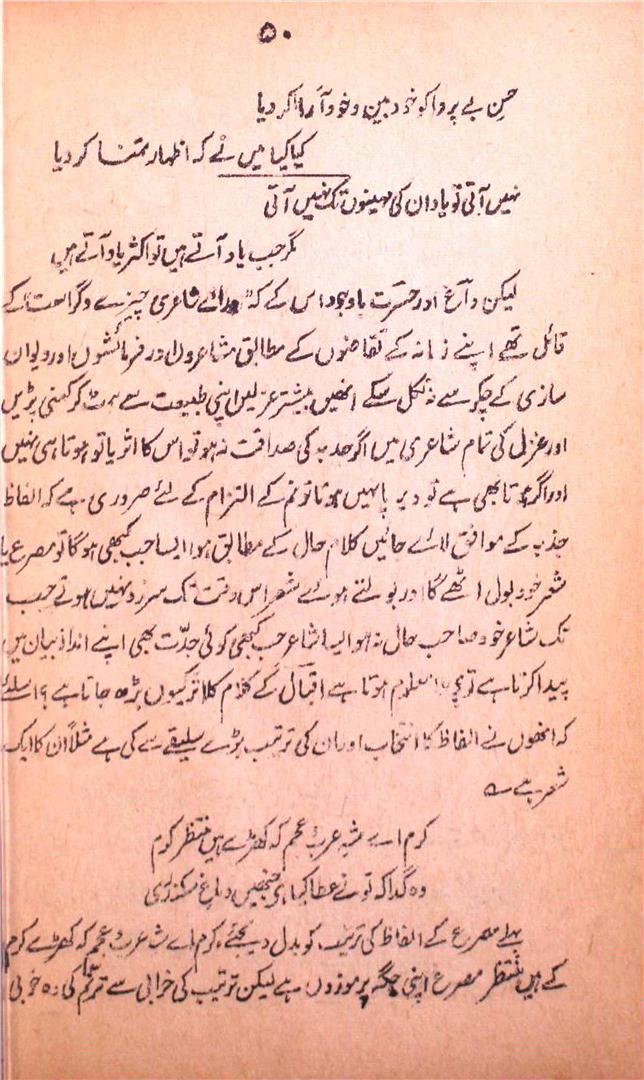 ۵۰
حسن بے پروا کو خود بین و خود آرا کر دیا
کیا کیا میں نے کہ اظہار تمنا کر دیا
نہیں آتی تو یاد ان کی مہینوں تک نہیں آتی
مگر جب یاد آتے ہیں تو اکثر یاد آتے ہیں
لیکن داغ اور حسرت باوجود اس کے کہ ورائے شاعری چیزے دگر است کے
قائل تھے اپنے زمانہ کے تقاضوں کے مطابق مشاعروں اور فرمائشوں اور دیوان
سازی کے چکر سے نہ نکل سکے انھیں بیشتر غزلیں اپنی طبیعت سے ہٹ کر کہنی پڑیں
اور غزل کی تمام شاعری میں اگر جذبہ کی صداقت نہ ہو تو اس کا اثر یا تو ہوتا ہی نہیں
اور اگر ہوتا بھی ہے تو دیر پا نہیں ہوتا ترنم کے التزام کے لئے ضروری ہے کہ الفاظ
جذبہ کے موافق لائے جائیں کلام حال کے مطابق ہو ایسا جب کبھی ہو گا تو مصرع یا
شعر خود بول اٹھے گا اور بولتے ہوئے شعر اس وقت تک سرزد نہیں ہوتے جب
تک شاعر خود صاحب حال نہ ہو ایسا شاعر جب کبھی کوئی جدّت بھی اپنے انداز بیان میں
پیدا کرتا ہے تو معلوم ہوتا ہے اقبال کے کلام کا اثر کیوں بڑھ جاتا ہے ؟ اسلئے
کہ انھوں نے الفاظ کا انتخاب اور ان کی ترتیب بڑے سلیقے سے کی ہے مثلاً ان کا ایک
شعر ہے ؎
کرم اے شہِ عرب و عجم کہ کھڑے ہیں منتظر کرم
وہ گدا کہ تو نے عطا کیا ہے جنھیں دماغِ سکندری
پہلے مصرع کے الفاظ کی ترتیب کو بدل دیجئے، کرم اے شہ عرب و عجم کہ کھڑے کرم
کے ہیں منتظر مصرع اپنی جگہ پر موزوں ہے لیکن ترتیب کی خرابی سے ترنّم کی وہ خوبی